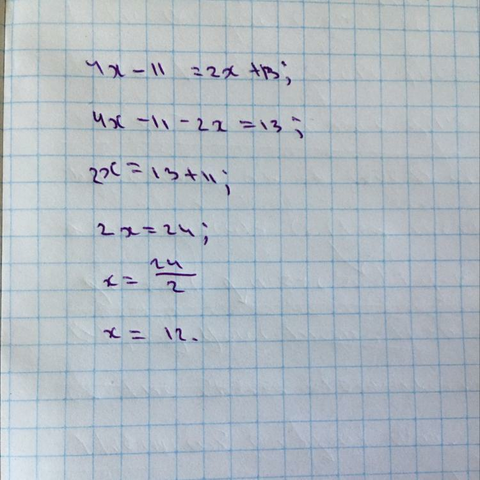 4x - 11 = 2x + 13;
4x - 11 - 2x = 13;
2x = 13 + 11;
2x = 24;
x = 24/2
x = 12.